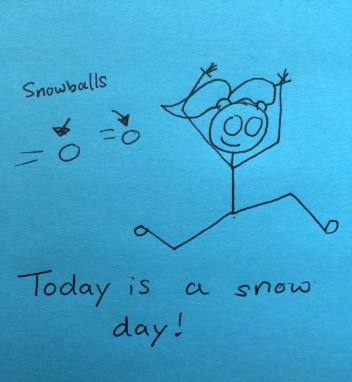 Snowballs
Today is a snow
day!